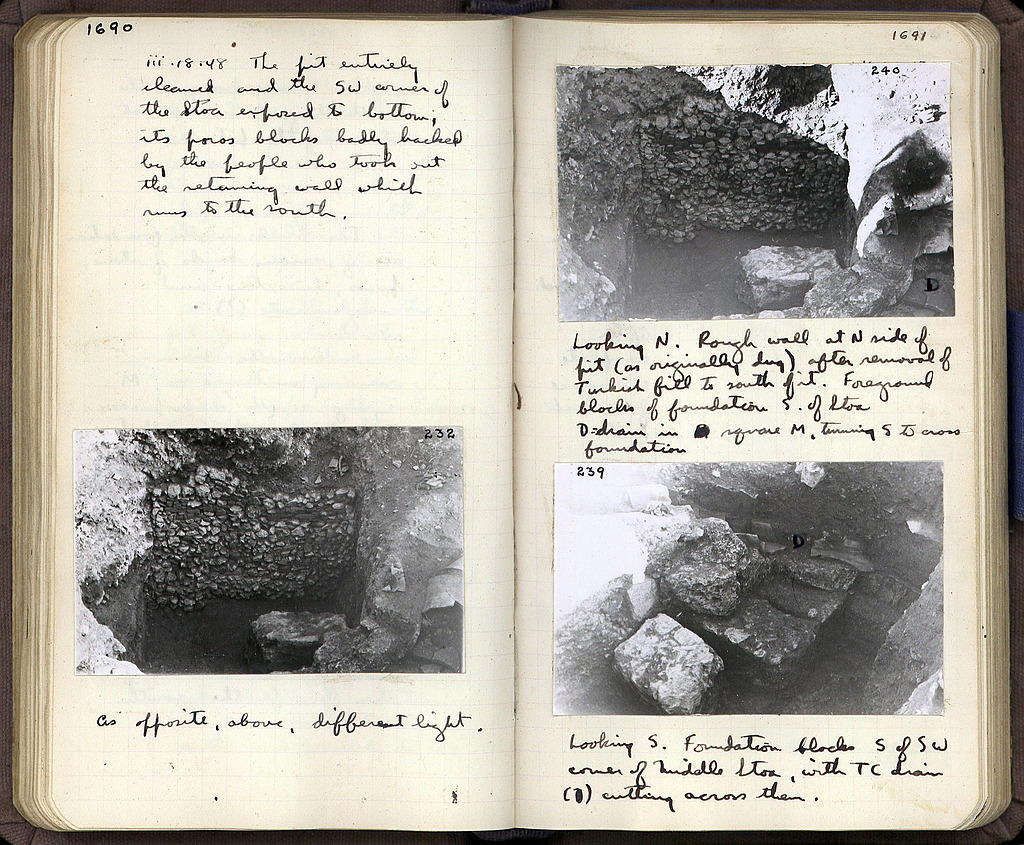 1690
iii·18·48 The pit entirely
cleaned and the SW corner of
the Stoa exposed to bottom;
its poros blocks badly hacked
by the people who took out
the retaining wall which
runs to the south.
232
as opposite, above, different light.
1691
240
D
Looking N. Rough wall at N side of
pit (as originally dug) after removal of
Turkish fill to south of it. Foreground
blocks of foundation S. of Stoa
D=drain in square M, turning S to cross
foundation
239
D
Looking S. Foundation blocks S of SW
corner of Middle Stoa, with TC drain
(D) cutting across them.